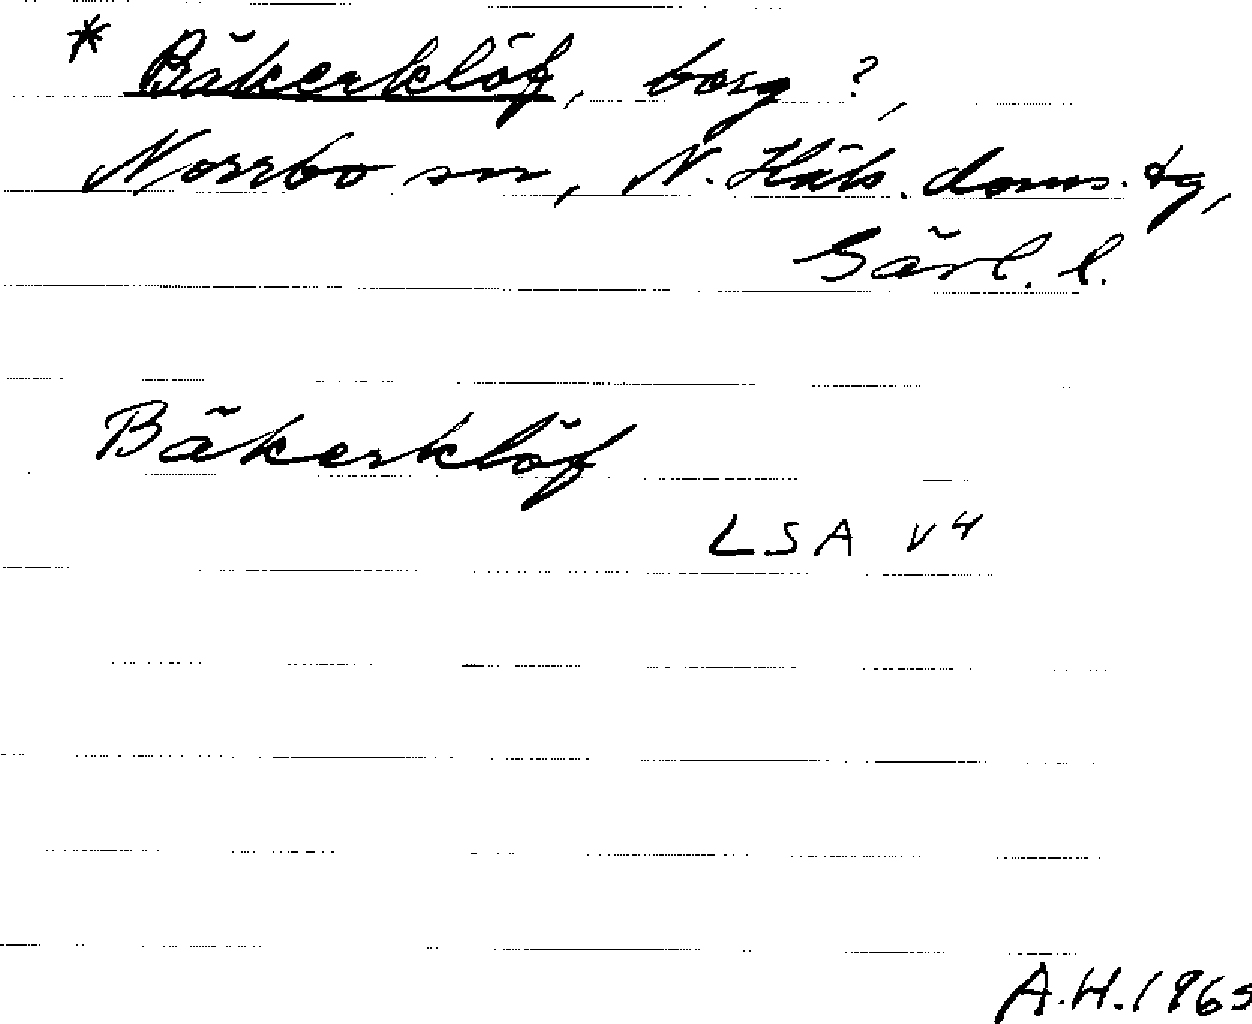 * Bäkerklöf, borg?,
Norrbo sn, N. Häls. doms. tg,
Gävl. l.
Bäkerklöf
LSA V4
A.H. 1965